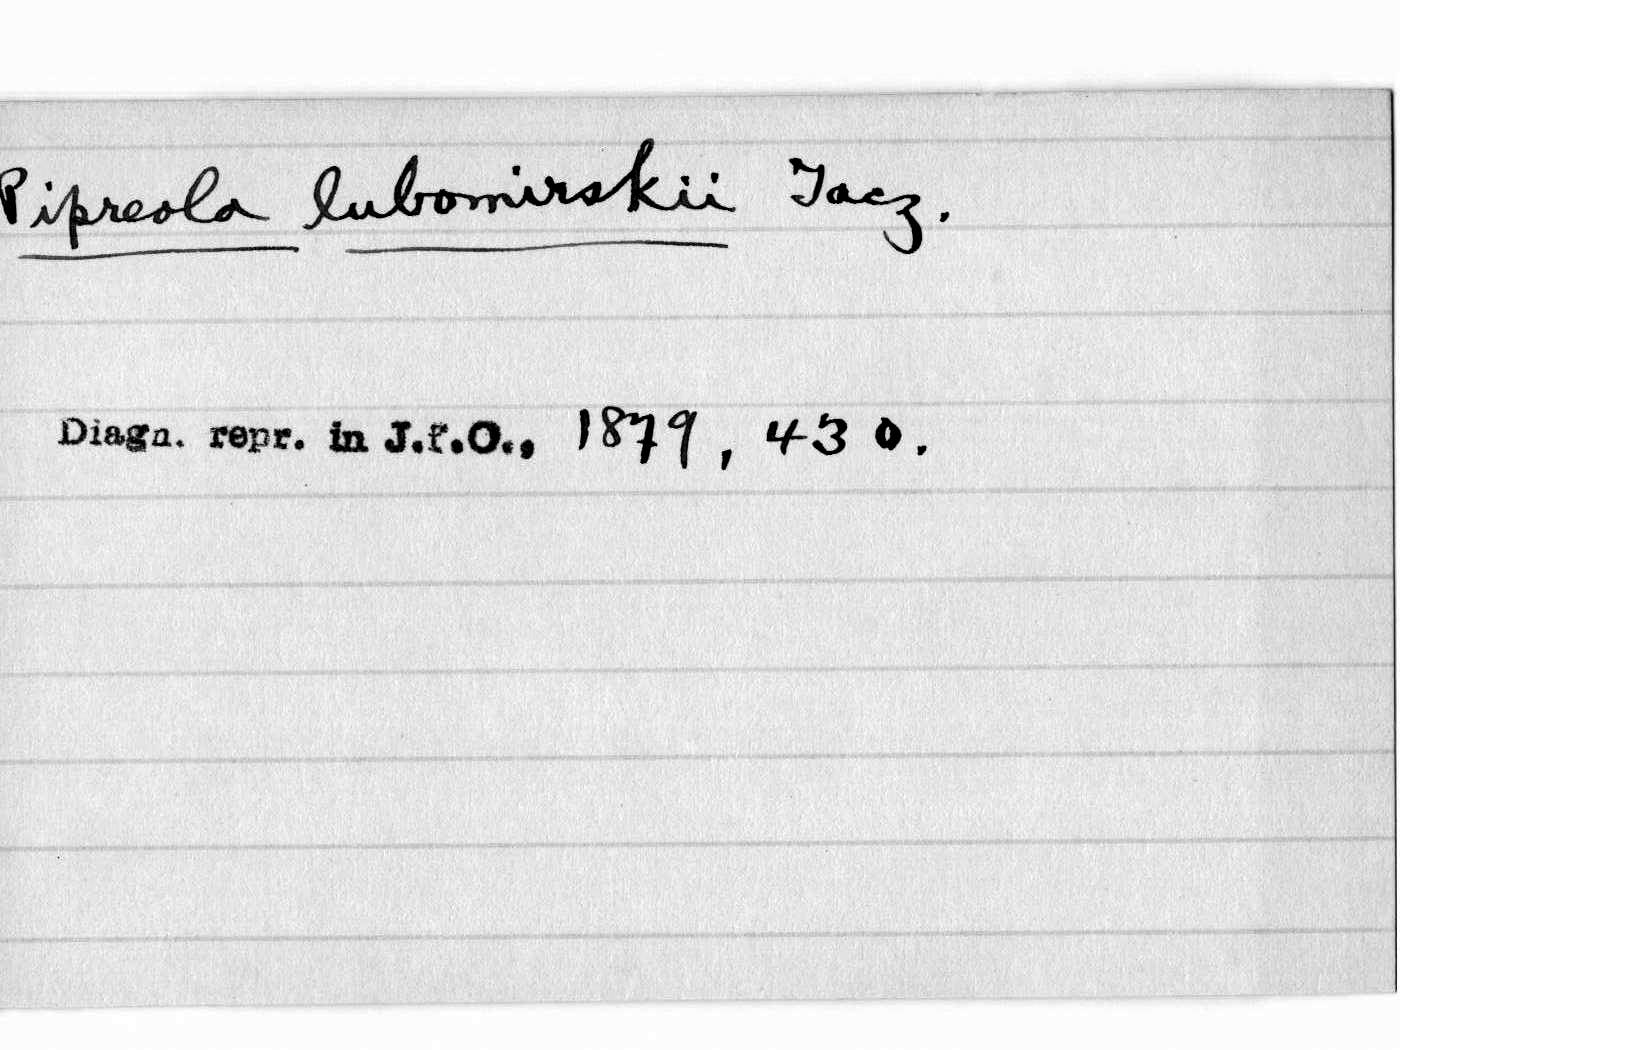 Pipreola lubomirskii Tacz.
Diagn. repr. in J.f.O., 1879, 430.